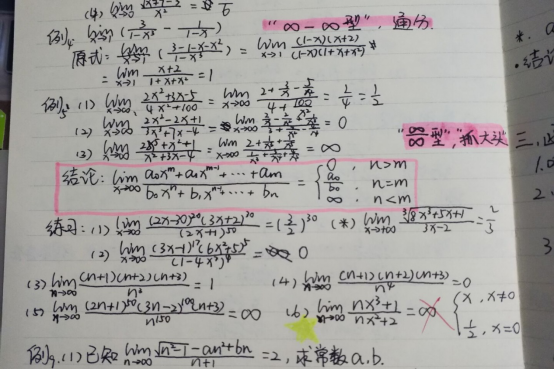 (4) lim x→0
例4. lim x→1 (3/(1-x³) - 1/(1-x)) "∞-∞型", 通分
原式= lim x→1 (3-1-x-x²)/(1-x³) = lim x→1 (1-x)(x+2)/((1-x)(1+x+x²))
= lim x→1 (x+2)/(1+x+x²) = 1
例5. (1) lim x→∞ (2x²+3x-5)/(4x²+100) = lim x→∞ (2+3/x-5/x²)/(4+100/x²) = 2/4 = 1/2
(2) lim x→∞ (2x²-2x+1)/(3x³+7x-4) = lim x→∞ = 0
"∞/∞型", "抓大头"
(3) lim x→∞ = lim x→∞ = ∞
结论: lim x→∞ (a₀xᵐ+a₁xᵐ⁻¹+…+aₘ)/(b₀xⁿ+b₁xⁿ⁻¹+…+bₙ) = { 0, n>m
a₀/b₀, n=m
∞, n<m
练习: (1) lim x→∞ (2x-3)²⁰(3x+2)³⁰/(2x+1)⁵⁰ = (3/2)³⁰ (*) lim x→+∞ ∛(8x³+5x+1)/(3x-2) = 2/3
(2) lim x→∞ = 0
(3) lim n→∞ (n+1)(n+2)(n+3)/n³ = 1 (4) lim n→∞ (n+1)(n+2)(n+3)/n⁴ = 0
(5) lim n→∞ (2n+1)⁵⁰(3n-2)¹⁰⁰(n+3)/n¹⁵⁰ = ∞ (6) lim n→∞ (nx³+1)/(nx²+2) = ∞ { x, x≠0
1/2, x=0
例9. (1) 已知 lim n→∞ (√(n²-1)-an²+bn)/(n+1) = 2, 求常数a.b.